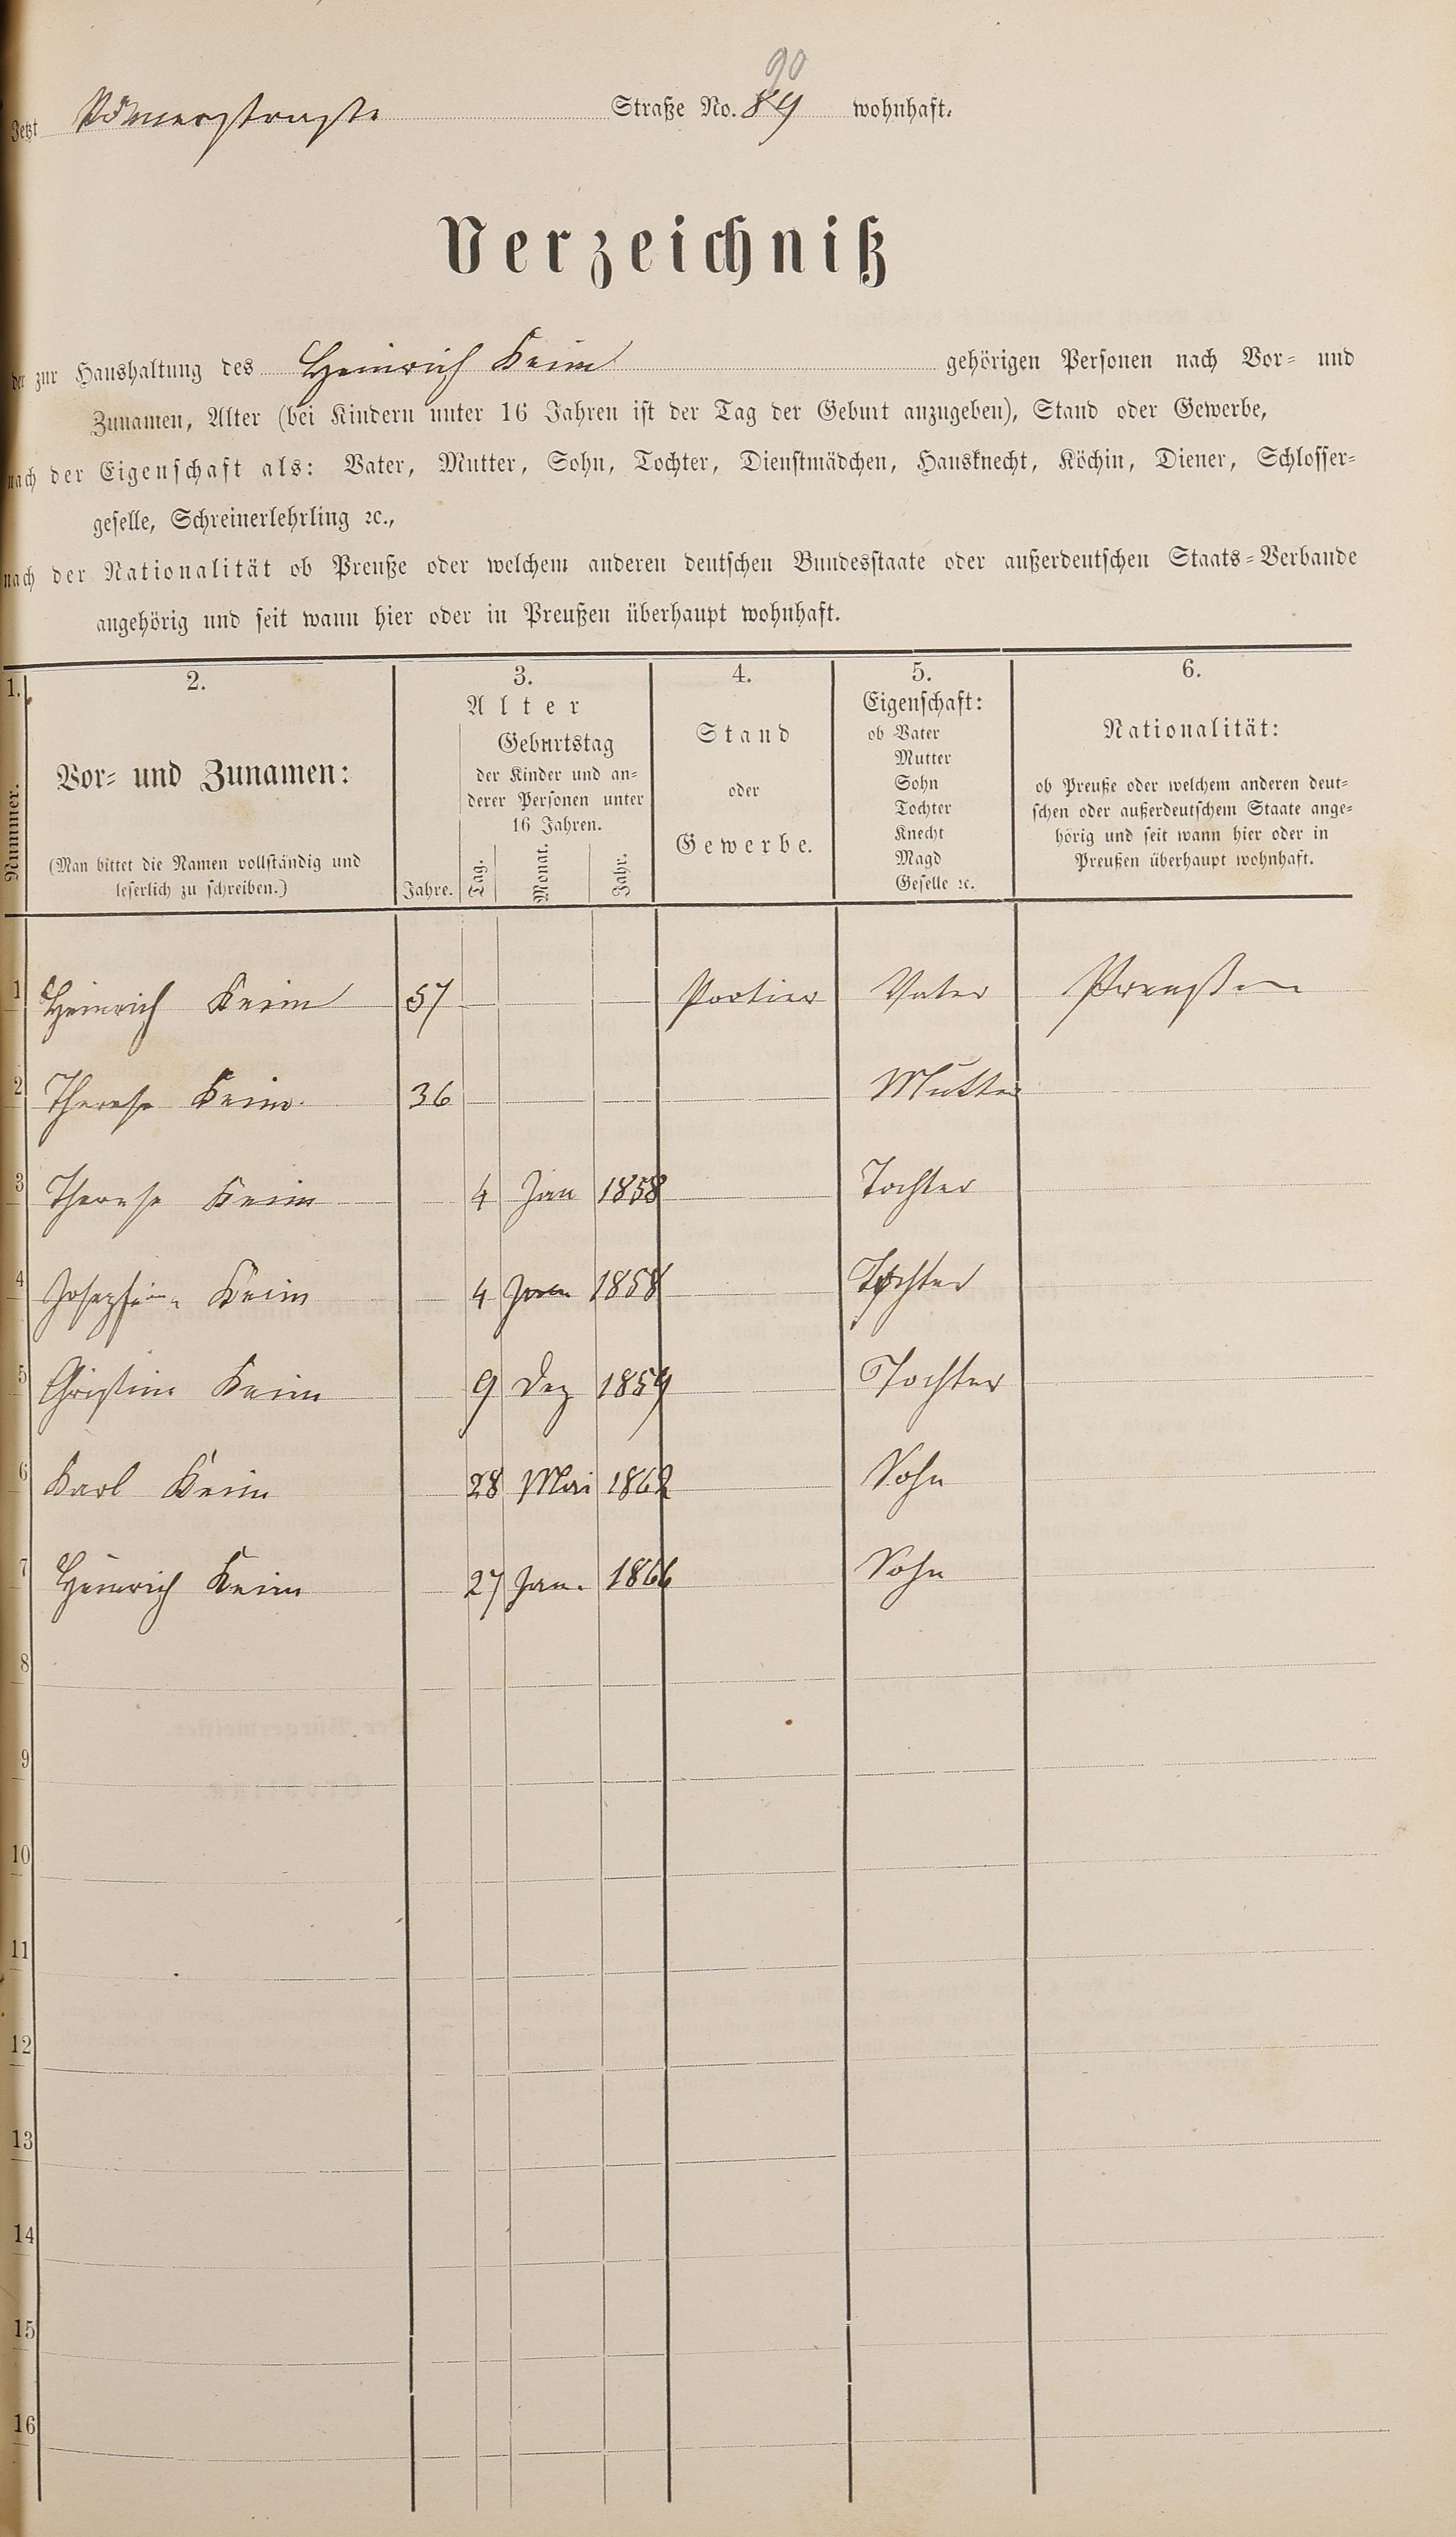 90
Jetzt Römerstraße Straße No. 89 wohnhaft.
Verzeichniß
der zur Haushaltung des Heinrich Keim gehörigen Personen nach Vor- und
Zunamen, Alter (bei Kindern unter 16 Jahren ist der Tag der Geburt anzugeben), Stand oder Gewerbe,
nach der Eigenschaft als: Vater, Mutter, Sohn, Tochter, Dienstmädchen, Hausknecht, Köchin, Diener, Schlosser-
geselle, Schreinerlehrling ꝛc.,
nach der Nationalität ob Preuße oder welchem anderen deutschen Bundesstaate oder außerdeutschen Staats-Verbande
angehörig und seit wann hier oder in Preußen überhaupt wohnhaft.
1.
Nummer.
2.
Vor- und Zunamen:
(Man bittet die Namen vollständig und
leserlich zu schreiben.)
3.
Alter
Jahre.
Geburtstag
der Kinder und an-
derer Personen unter
16 Jahren.
Tag. Monat. Jahr.
4.
Stand
oder
Gewerbe.
5.
Eigenschaft:
ob Vater
Mutter
Sohn
Tochter
Knecht
Magd
Geselle ꝛc.
6.
Nationalität:
ob Preuße oder welchem anderen deut-
schen oder außerdeutschem Staate ange-
hörig und seit wann hier oder in
Preußen überhaupt wohnhaft.
1 Heinrich Keim 57 Portier Vater Preußen
2 Therese Keim 36 Mutter
3 Therese Keim 4 Jan 1858 Tochter
4 Josephine Keim 4 Jan 1858 Tochter
5 Christine Keim 9 Dez 1859 Tochter
6 Karl Keim 28 Mai 1862 Sohn
7 Heinrich Keim 27 Jan. 1866 Sohn
8
9
10
11
12
13
14
15
16